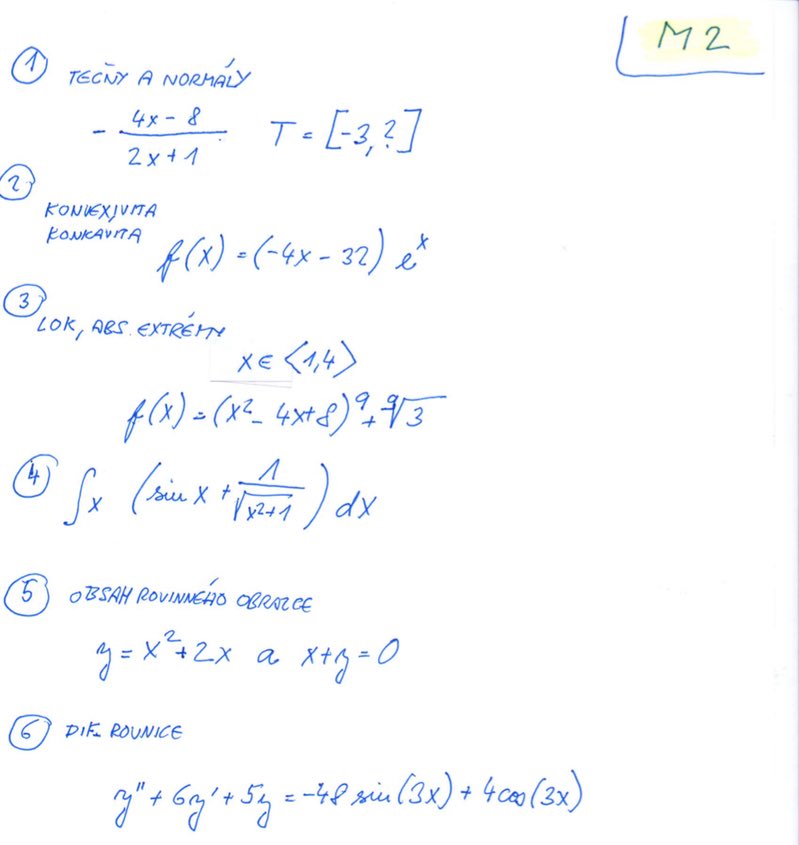 M2
① TEČNY A NORMÁLY
- (4x - 8)/(2x + 1) T = [-3, ?]
②
KONVEXIVITA
KONKAVITA
f(x) = (-4x - 32) e^x
③
LOK, ABS. EXTRÉMY
x ∈ ⟨1,4⟩
f(x) = (x² - 4x + 8)^9 + ⁹√3
④ ∫ x (sin x + 1/√(x²+1)) dx
⑤ OBSAH ROVINNÉHO OBRAZCE
y = x² + 2x a x + y = 0
⑥ DIF. ROVNICE
y'' + 6y' + 5y = -48 sin(3x) + 4cos(3x)